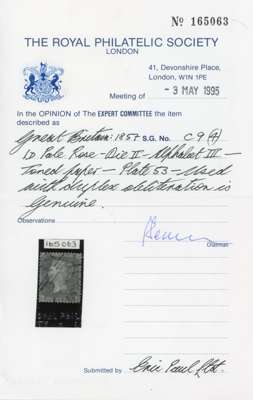 No 165063
THE ROYAL PHILATELIC SOCIETY
LONDON
41, Devonshire Place,
London, W1N 1PE
Meeting of - 3 MAY 1995
In the OPINION of The EXPERT COMMITTEE the item
described as
Great Britain: 1857 S.G. No. C9(4)
1D Pale Rose - Die II - Alphabet III -
Toned paper - Plate 53 - Used
with duplex obliteration is
genuine.
Observations
Chairman
165063
Submitted by Eric Paul Ltd.